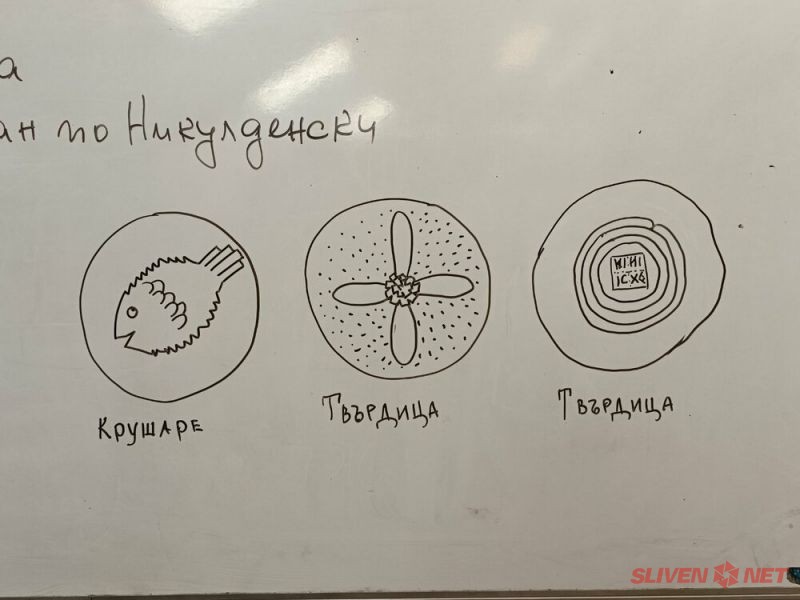 а
ан по Никулденски
НІ НІ
ІС ХС
Крушаре
Твърдица
Твърдица
SLIVEN NET